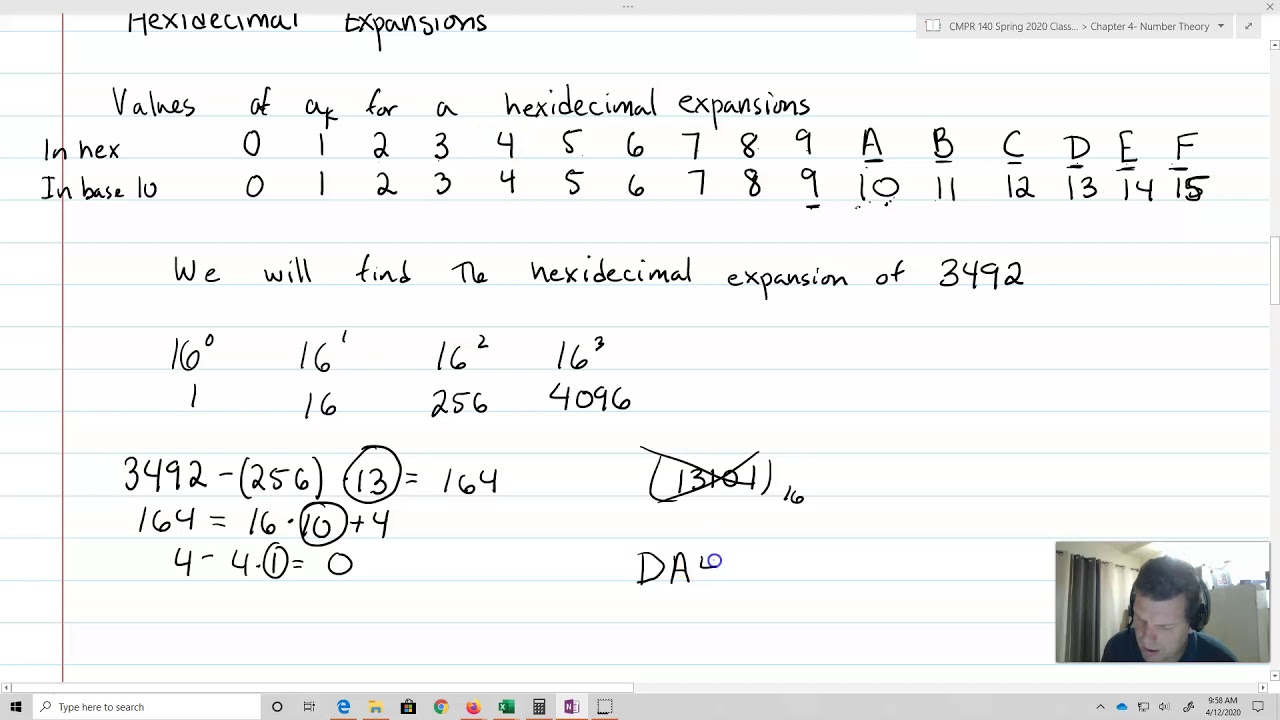 Hexidecimal Expansions
CMPR 140 Spring 2020 Class... > Chapter 4- Number Theory
Values of aₖ for a hexidecimal expansions
In hex 0 1 2 3 4 5 6 7 8 9 A B C D E F
In base 10 0 1 2 3 4 5 6 7 8 9 10 11 12 13 14 15
We will find the hexidecimal expansion of 3492
16⁰ 16¹ 16² 16³
1 16 256 4096
3492 - (256) · 13 = 164
(13101)₁₆
164 = 16 · 10 + 4
4 - 4 · 1 = 0
DA
Type here to search
9:58 AM
4/12/2020